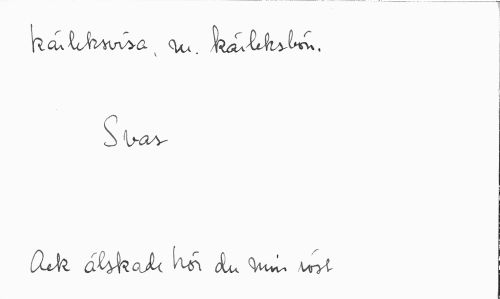 kärleksvisa, m. kärleksbön.
Svar
Ack älskade hör du min röst